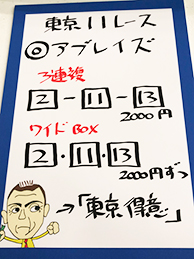 東京11レース
◎アブレイズ
3連複
2-11-13
2000円
ワイドBOX
2・11・13
2000円ずつ
→「東京得意」